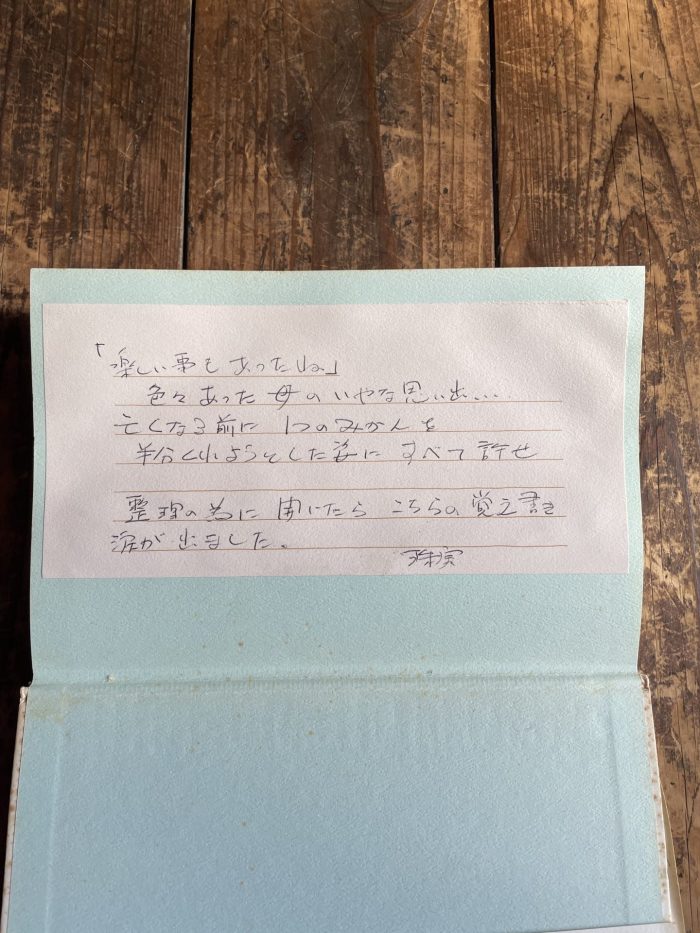 「楽しい事もあったね」
色々あった母のいやな思い出....
亡くなる前に1つのみかんを
半分くれようとした姿にすべて許せ
整理の為に開いたらこちらの覚え書き
涙が出ました。
珠実